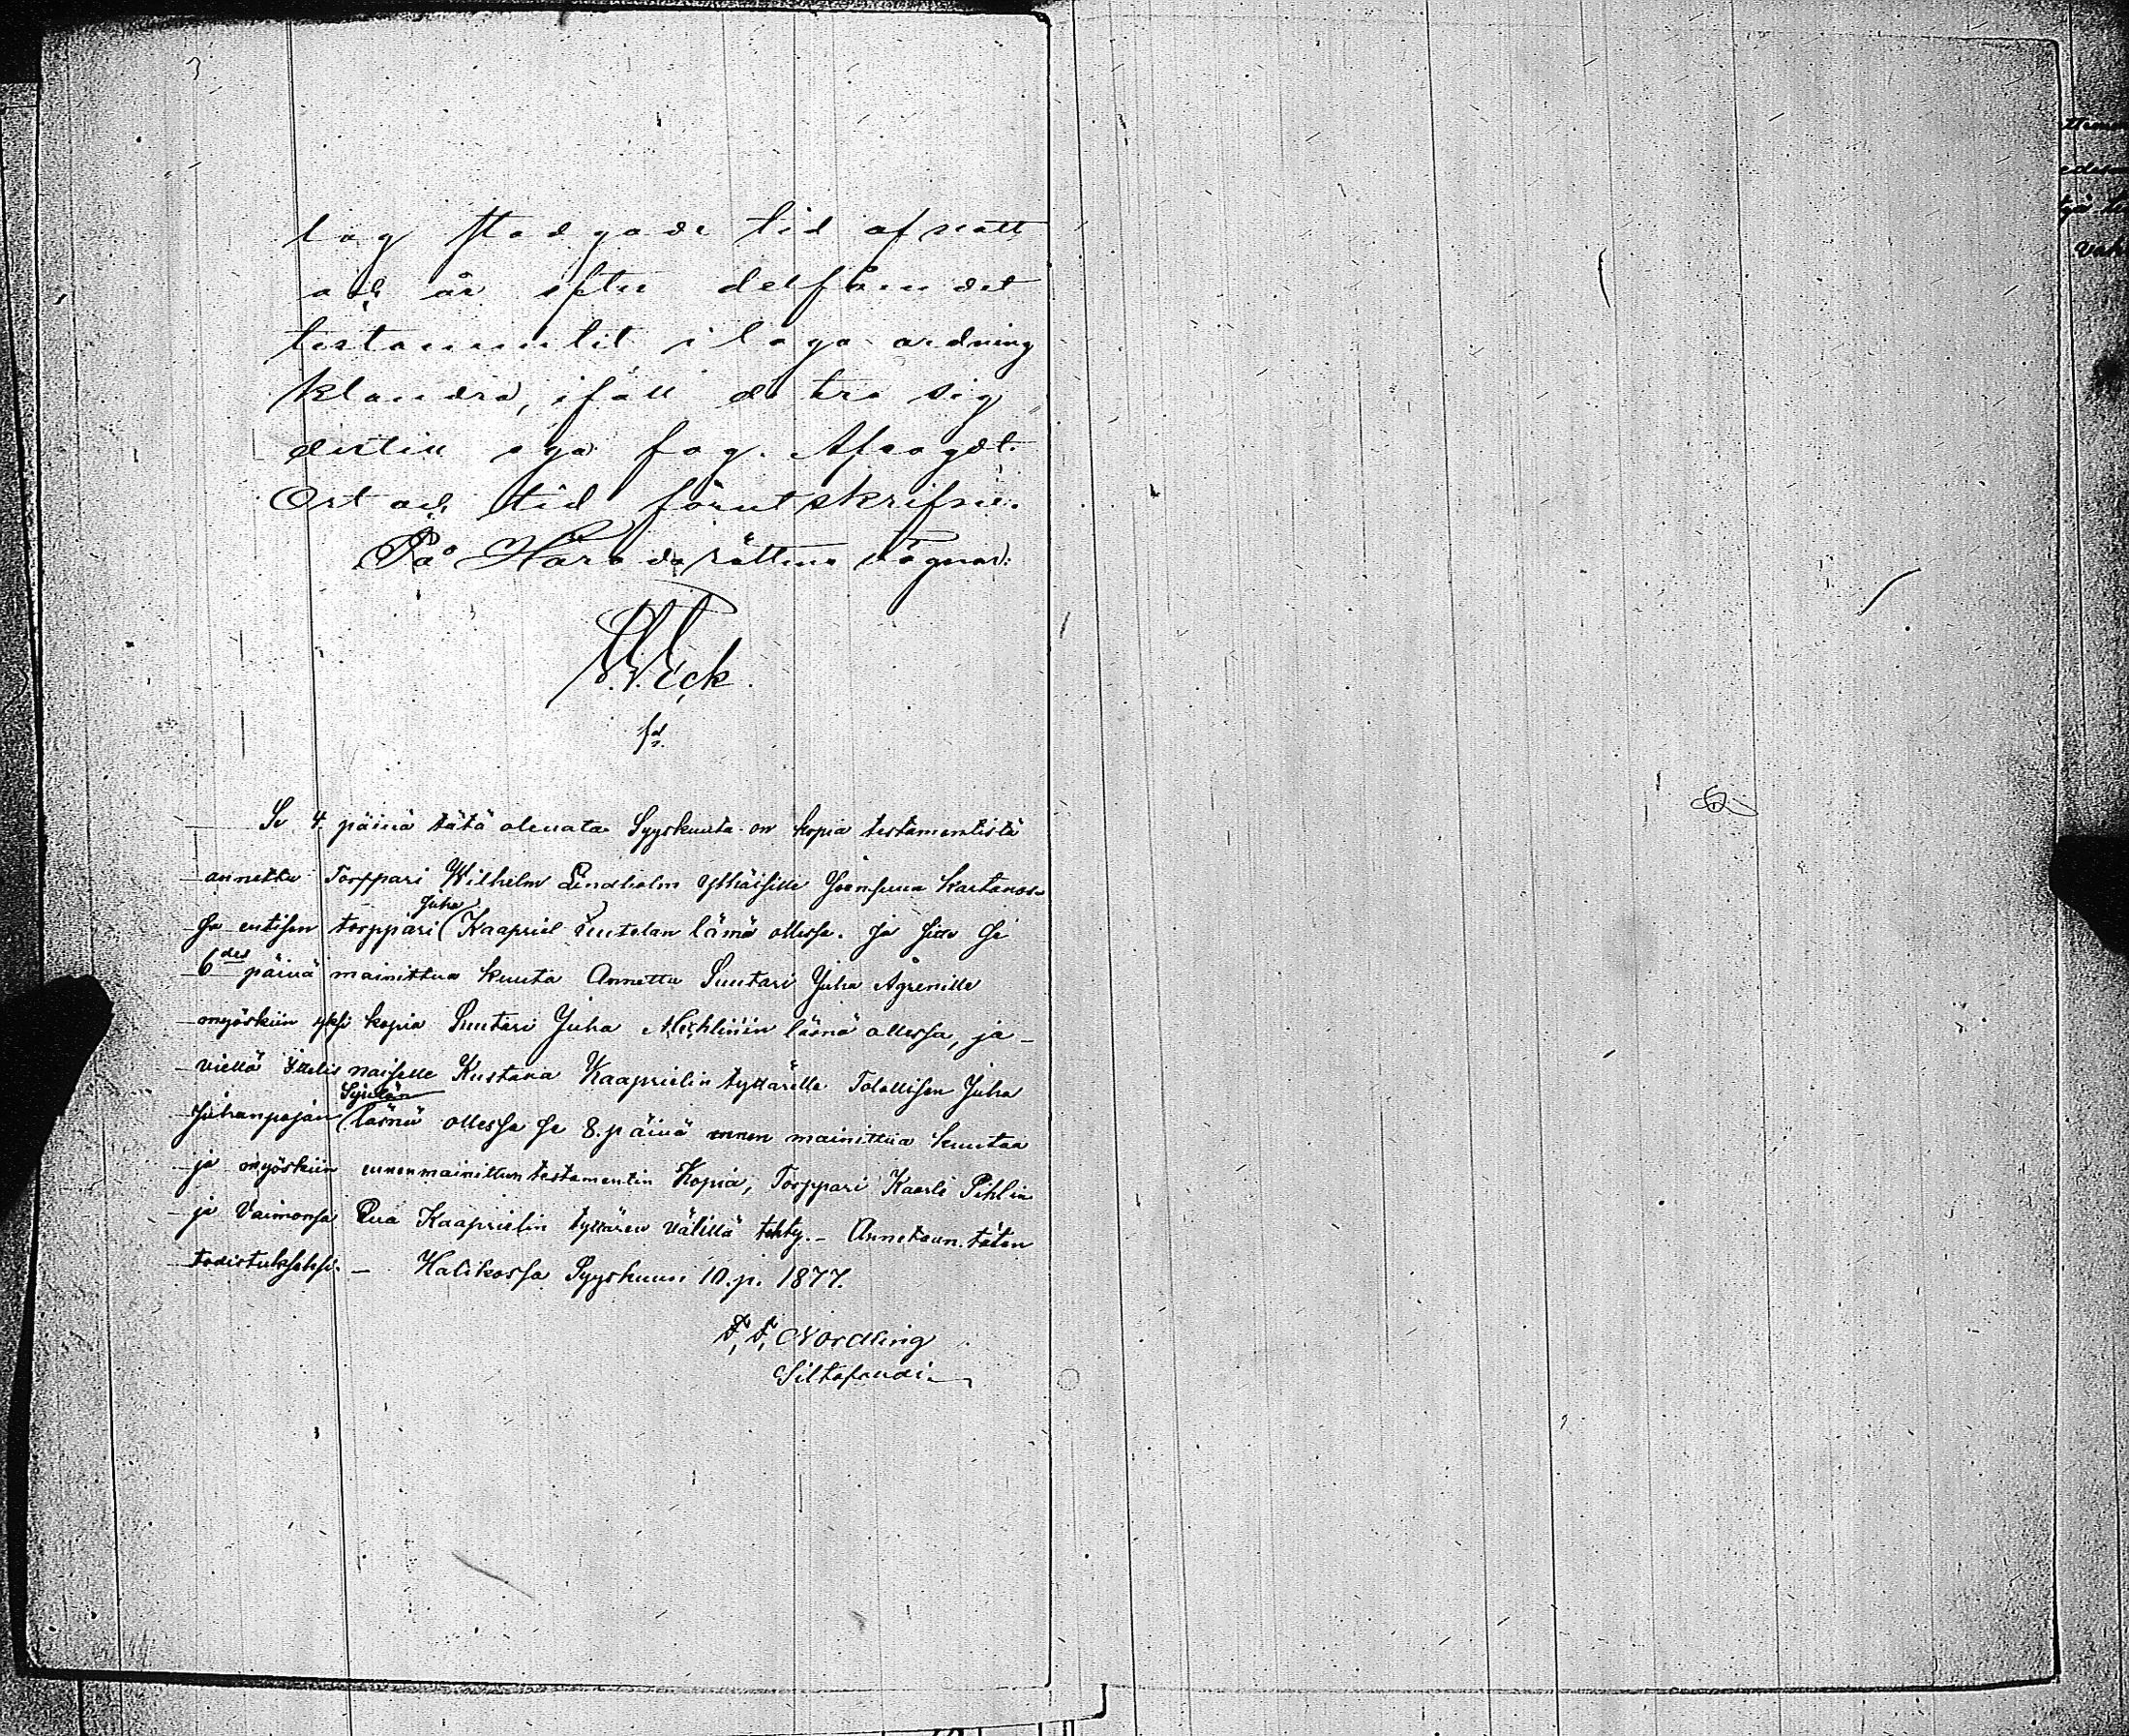 lag stadgade tid af natt
och år efter delfåendet
testamentet i laga ordning
klandra, ifall de tro sig
dertill ega fog. Afsagdt.
Ort och tid förutskrifne.
På Häradsrättens vägnar:
Eck
Se 4 päivä tätä olevata Syyskuuta on kopia testamentistä
annettu Torppari Wilhelm Lindholm ythäisille Joensuun kartanos-
Juha
sa entisen torppari (Kaapriel Uutelan länä ollessa. Ja sitte Se
6des päivä mainittua kuuta Annettu Suutari Juha Ågrenille
myöskiin yksi kopia Suutari Juha Mechlinin läsnä ollessa, ja
viellä Ittelis naiselle Kustava Kaaprielin tyttärelle Talollisen Juha
Syvelän
Juhanpojan (läsnä ollessa se 8. päivä ennen mainittua kuutaa
ja myöskiin ennenmainittun testamentin Kopia, Torppari Kaarle Pihlin
ja Vaimonsa Eva Kaaprielin tyttären välillä tehty. - Annetaan täten
todistukseksi. - Halikossa Syyskuun 10. p. 1877.
F. F. Nordling
Siltafouti